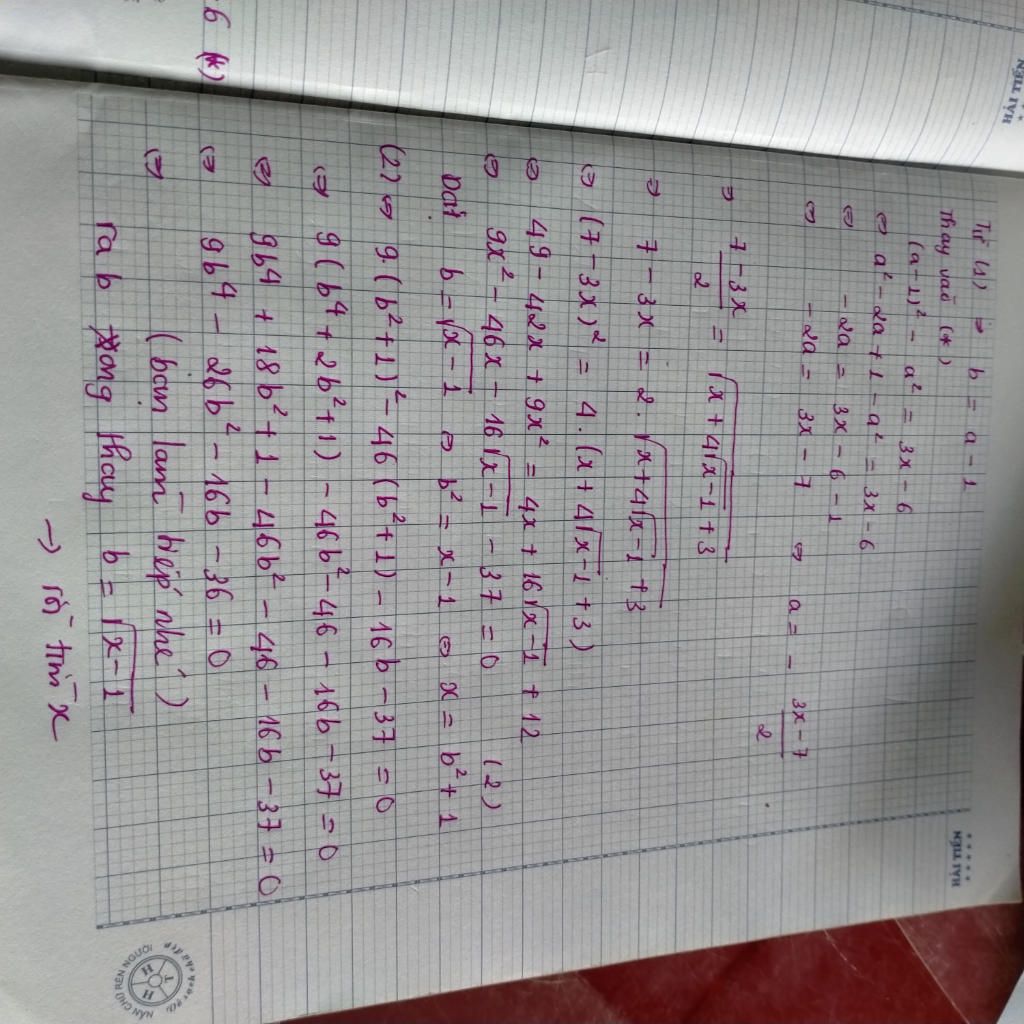 6 (*)
Từ (1) => b = a - 1
Thay vào (*)
(a-1)² - a² = 3x - 6
⇔ a² - 2a + 1 - a² = 3x - 6
⇔ - 2a = 3x - 6 - 1
⇔ - 2a = 3x - 7 ⇔ a = - \frac{3x-7}{2}
=> \frac{7-3x}{2} = √(x + 4√(x-1) + 3)
=> 7 - 3x = 2.√(x + 4√(x-1) + 3)
⇔ (7 - 3x)² = 4.(x + 4√(x-1) + 3)
⇔ 49 - 42x + 9x² = 4x + 16√(x-1) + 12
⇔ 9x² - 46x - 16√(x-1) - 37 = 0 (2)
Đặt b = √(x-1) ⇔ b² = x - 1 ⇔ x = b² + 1
(2) ⇔ 9.(b²+1)² - 46(b²+1) - 16b - 37 = 0
⇔ 9(b⁴ + 2b² + 1) - 46b² - 46 - 16b - 37 = 0
⇔ 9b⁴ + 18b² + 1 - 46b² - 46 - 16b - 37 = 0
⇔ 9b⁴ - 26b² - 16b - 36 = 0
⇔ (bạn làm tiếp nhé)
ra b xong thay b = √(x-1)
→ rồi tìm x
HẢI TIẾN
HẢI TIẾN
NẮN CHỮ RÈN NGƯỜI
H T H